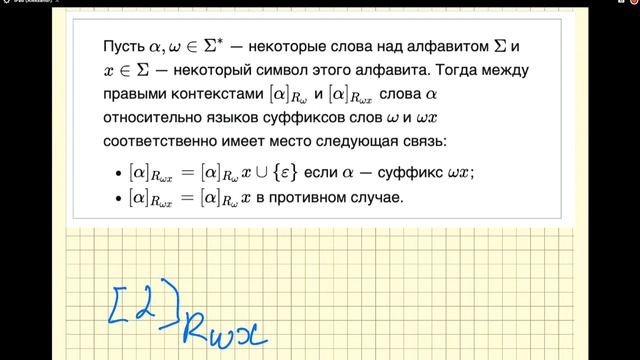 Пусть α, ω ∈ Σ* — некоторые слова над алфавитом Σ и
x ∈ Σ — некоторый символ этого алфавита. Тогда между
правыми контекстами [α]_{R_ω} и [α]_{R_{ωx}} слова α
относительно языков суффиксов слов ω и ωx
соответственно имеет место следующая связь:
• [α]_{R_{ωx}} = [α]_{R_ω} x ∪ {ε} если α — суффикс ωx;
• [α]_{R_{ωx}} = [α]_{R_ω} x в противном случае.
[α]_{Rωx}